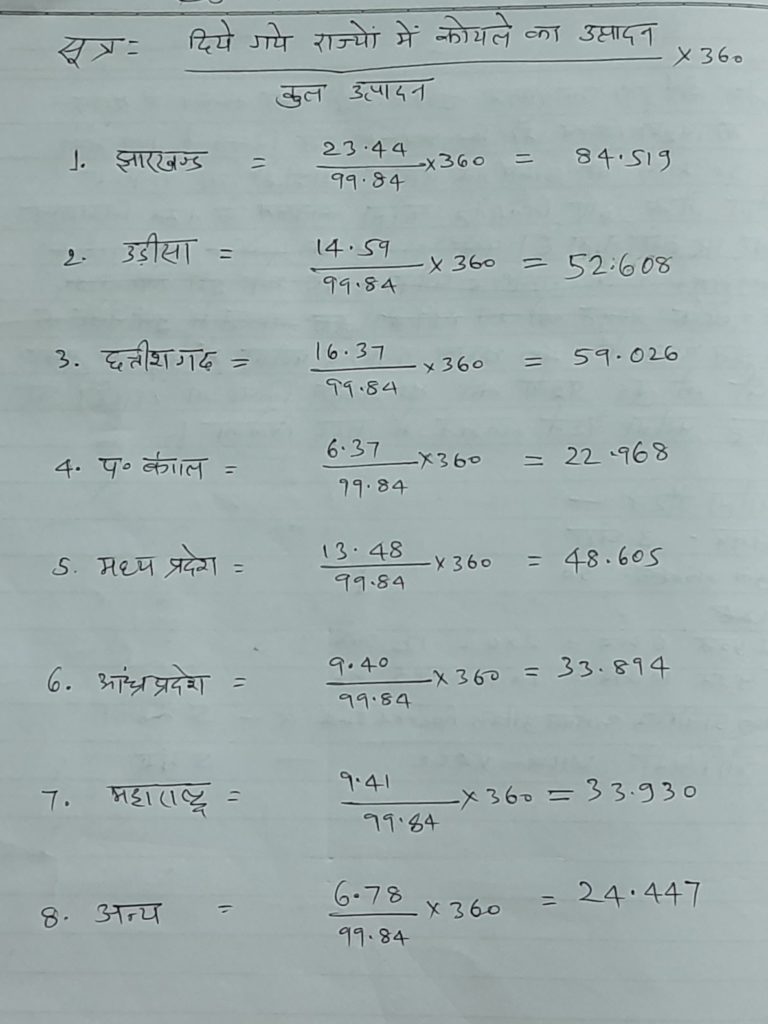 सूत्र = दिये गये राज्यों में कोयले का उत्पादन × 360
कुल उत्पादन
1. झारखण्ड = 23.44 / 99.84 × 360 = 84.519
2. उड़ीसा = 14.59 / 99.84 × 360 = 52.608
3. छत्तीशगढ = 16.37 / 99.84 × 360 = 59.026
4. प० बंगाल = 6.37 / 99.84 × 360 = 22.968
5. मध्य प्रदेश = 13.48 / 99.84 × 360 = 48.605
6. आंध्र प्रदेश = 9.40 / 99.84 × 360 = 33.894
7. महाराष्ट्र = 9.41 / 99.84 × 360 = 33.930
8. अन्य = 6.78 / 99.84 × 360 = 24.447